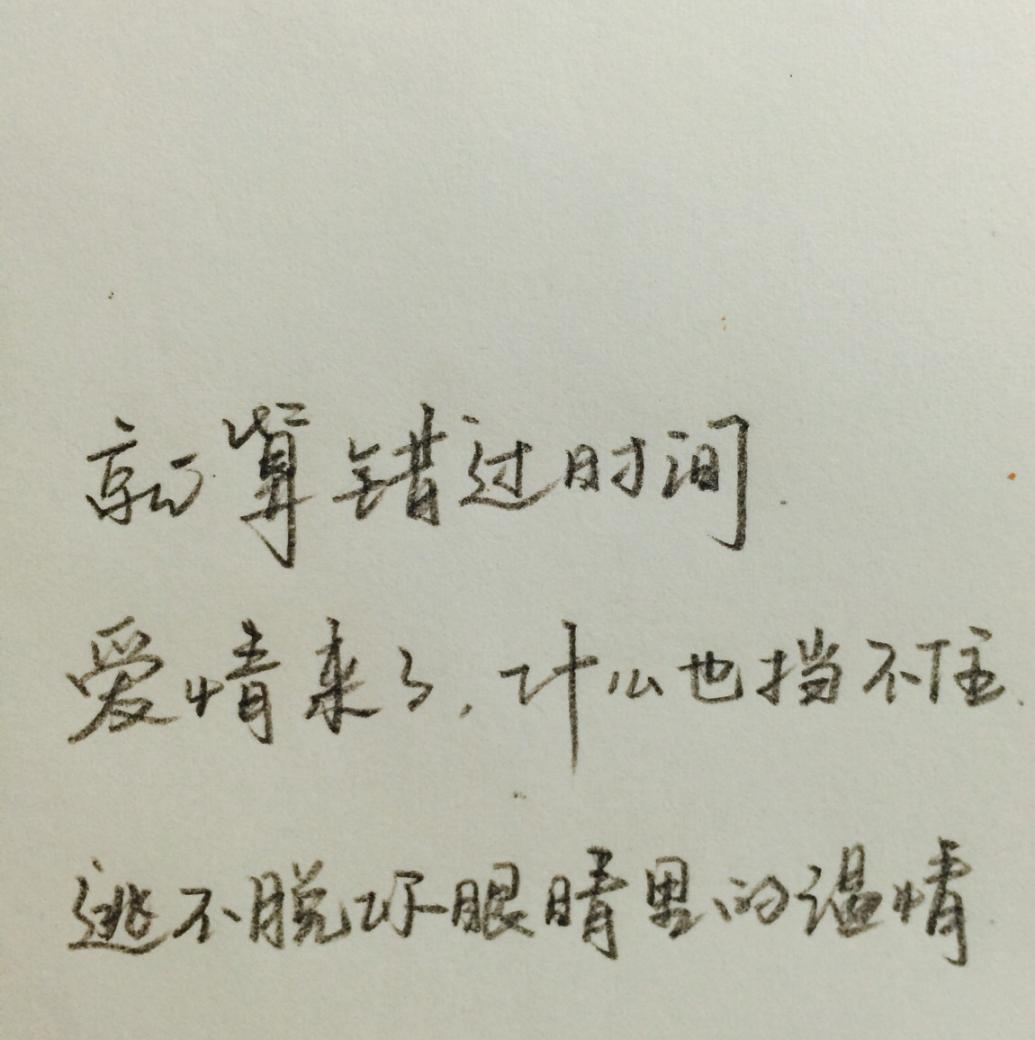 就算错过时间
爱情来了，什么也挡不住.
逃不脱你眼睛里的温情